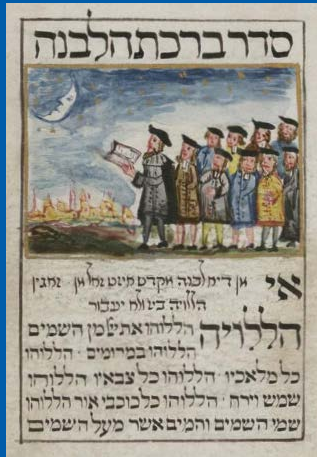 סדר ברכת הלבנה
אי מן דיא לבנה מקדש
הללויה
הללויה הללוהו את ש׳ מן השמים
הללוהו במרומים · הללוהו
כל מלאכיו · הללוהו כל צבאיו הללוהו
שמש וירח · הללוהו כל כוכבי אור הללוהו
שמי השמים והמים אשר מעל השמים